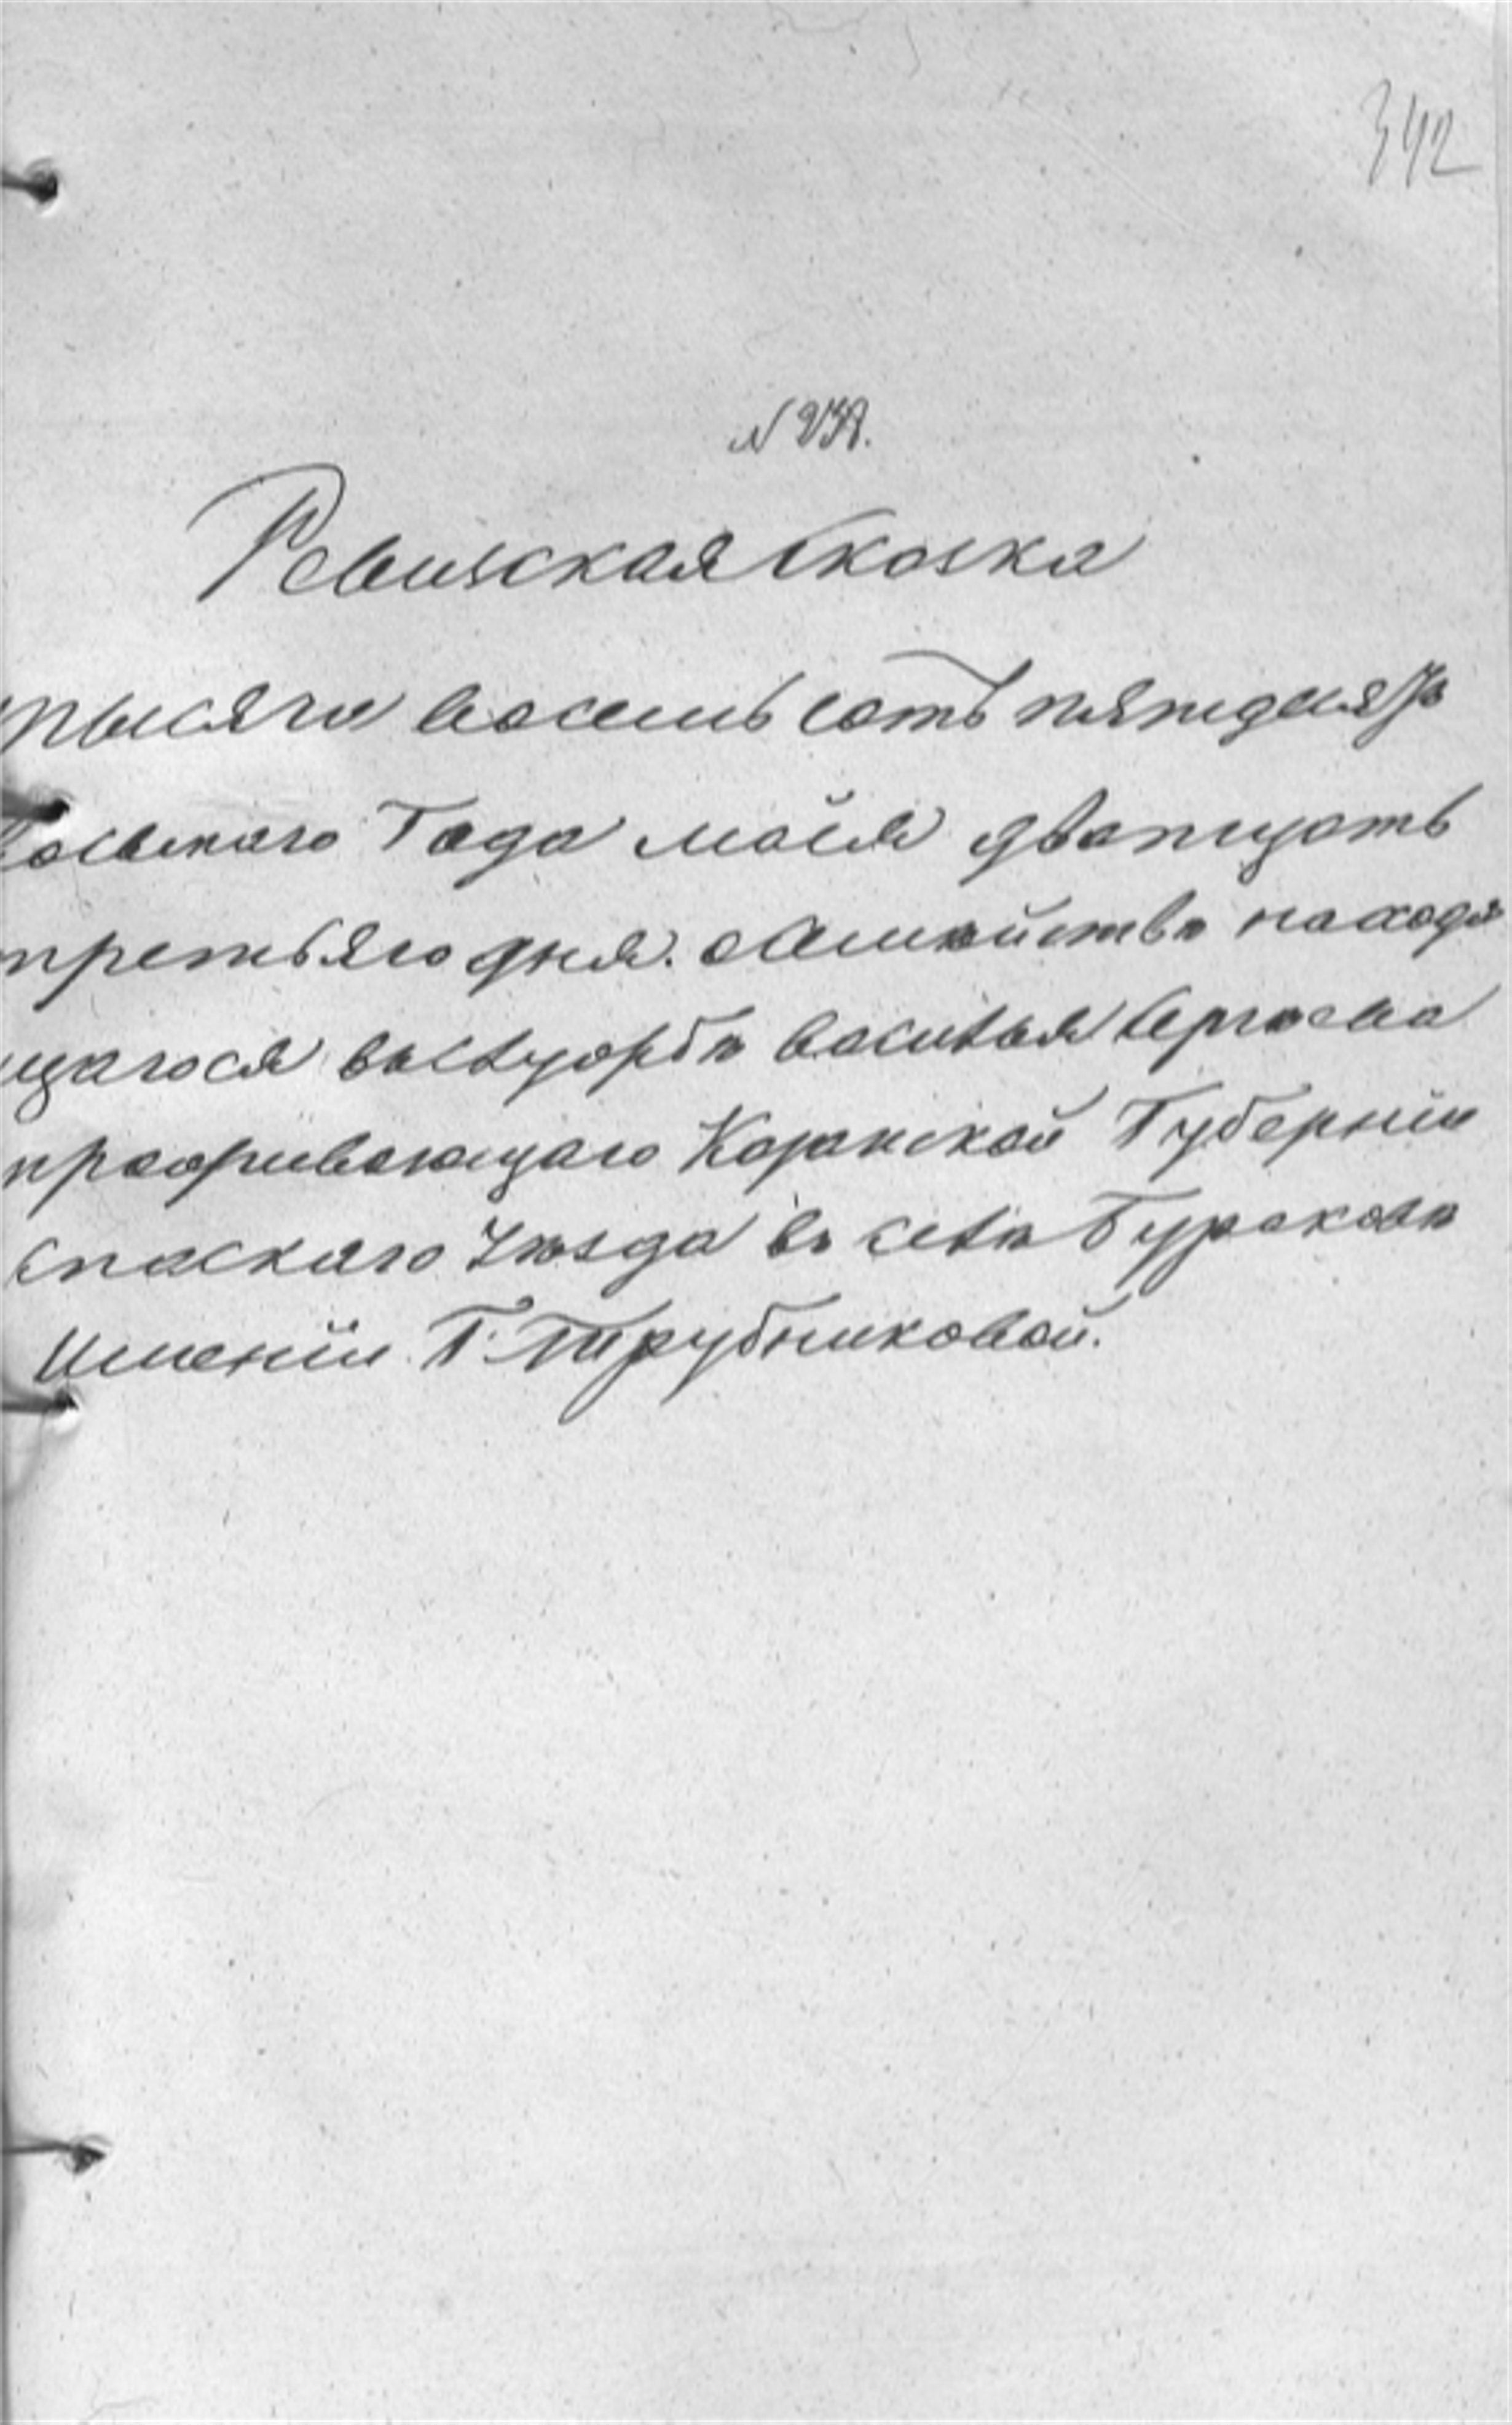 342
Ревизская Сказка
тысяча восемь сотъ пятдеся
восьмаго Года маія дватцать
третьяго дня. о Семѣйствѣ находя
щагося въ службѣ василья Сергѣева
проживающаго Казанской Губерніи
спаскаго Уѣзда въ селѣ Бураковѣ
Имѣніи Г. Трубниковой.